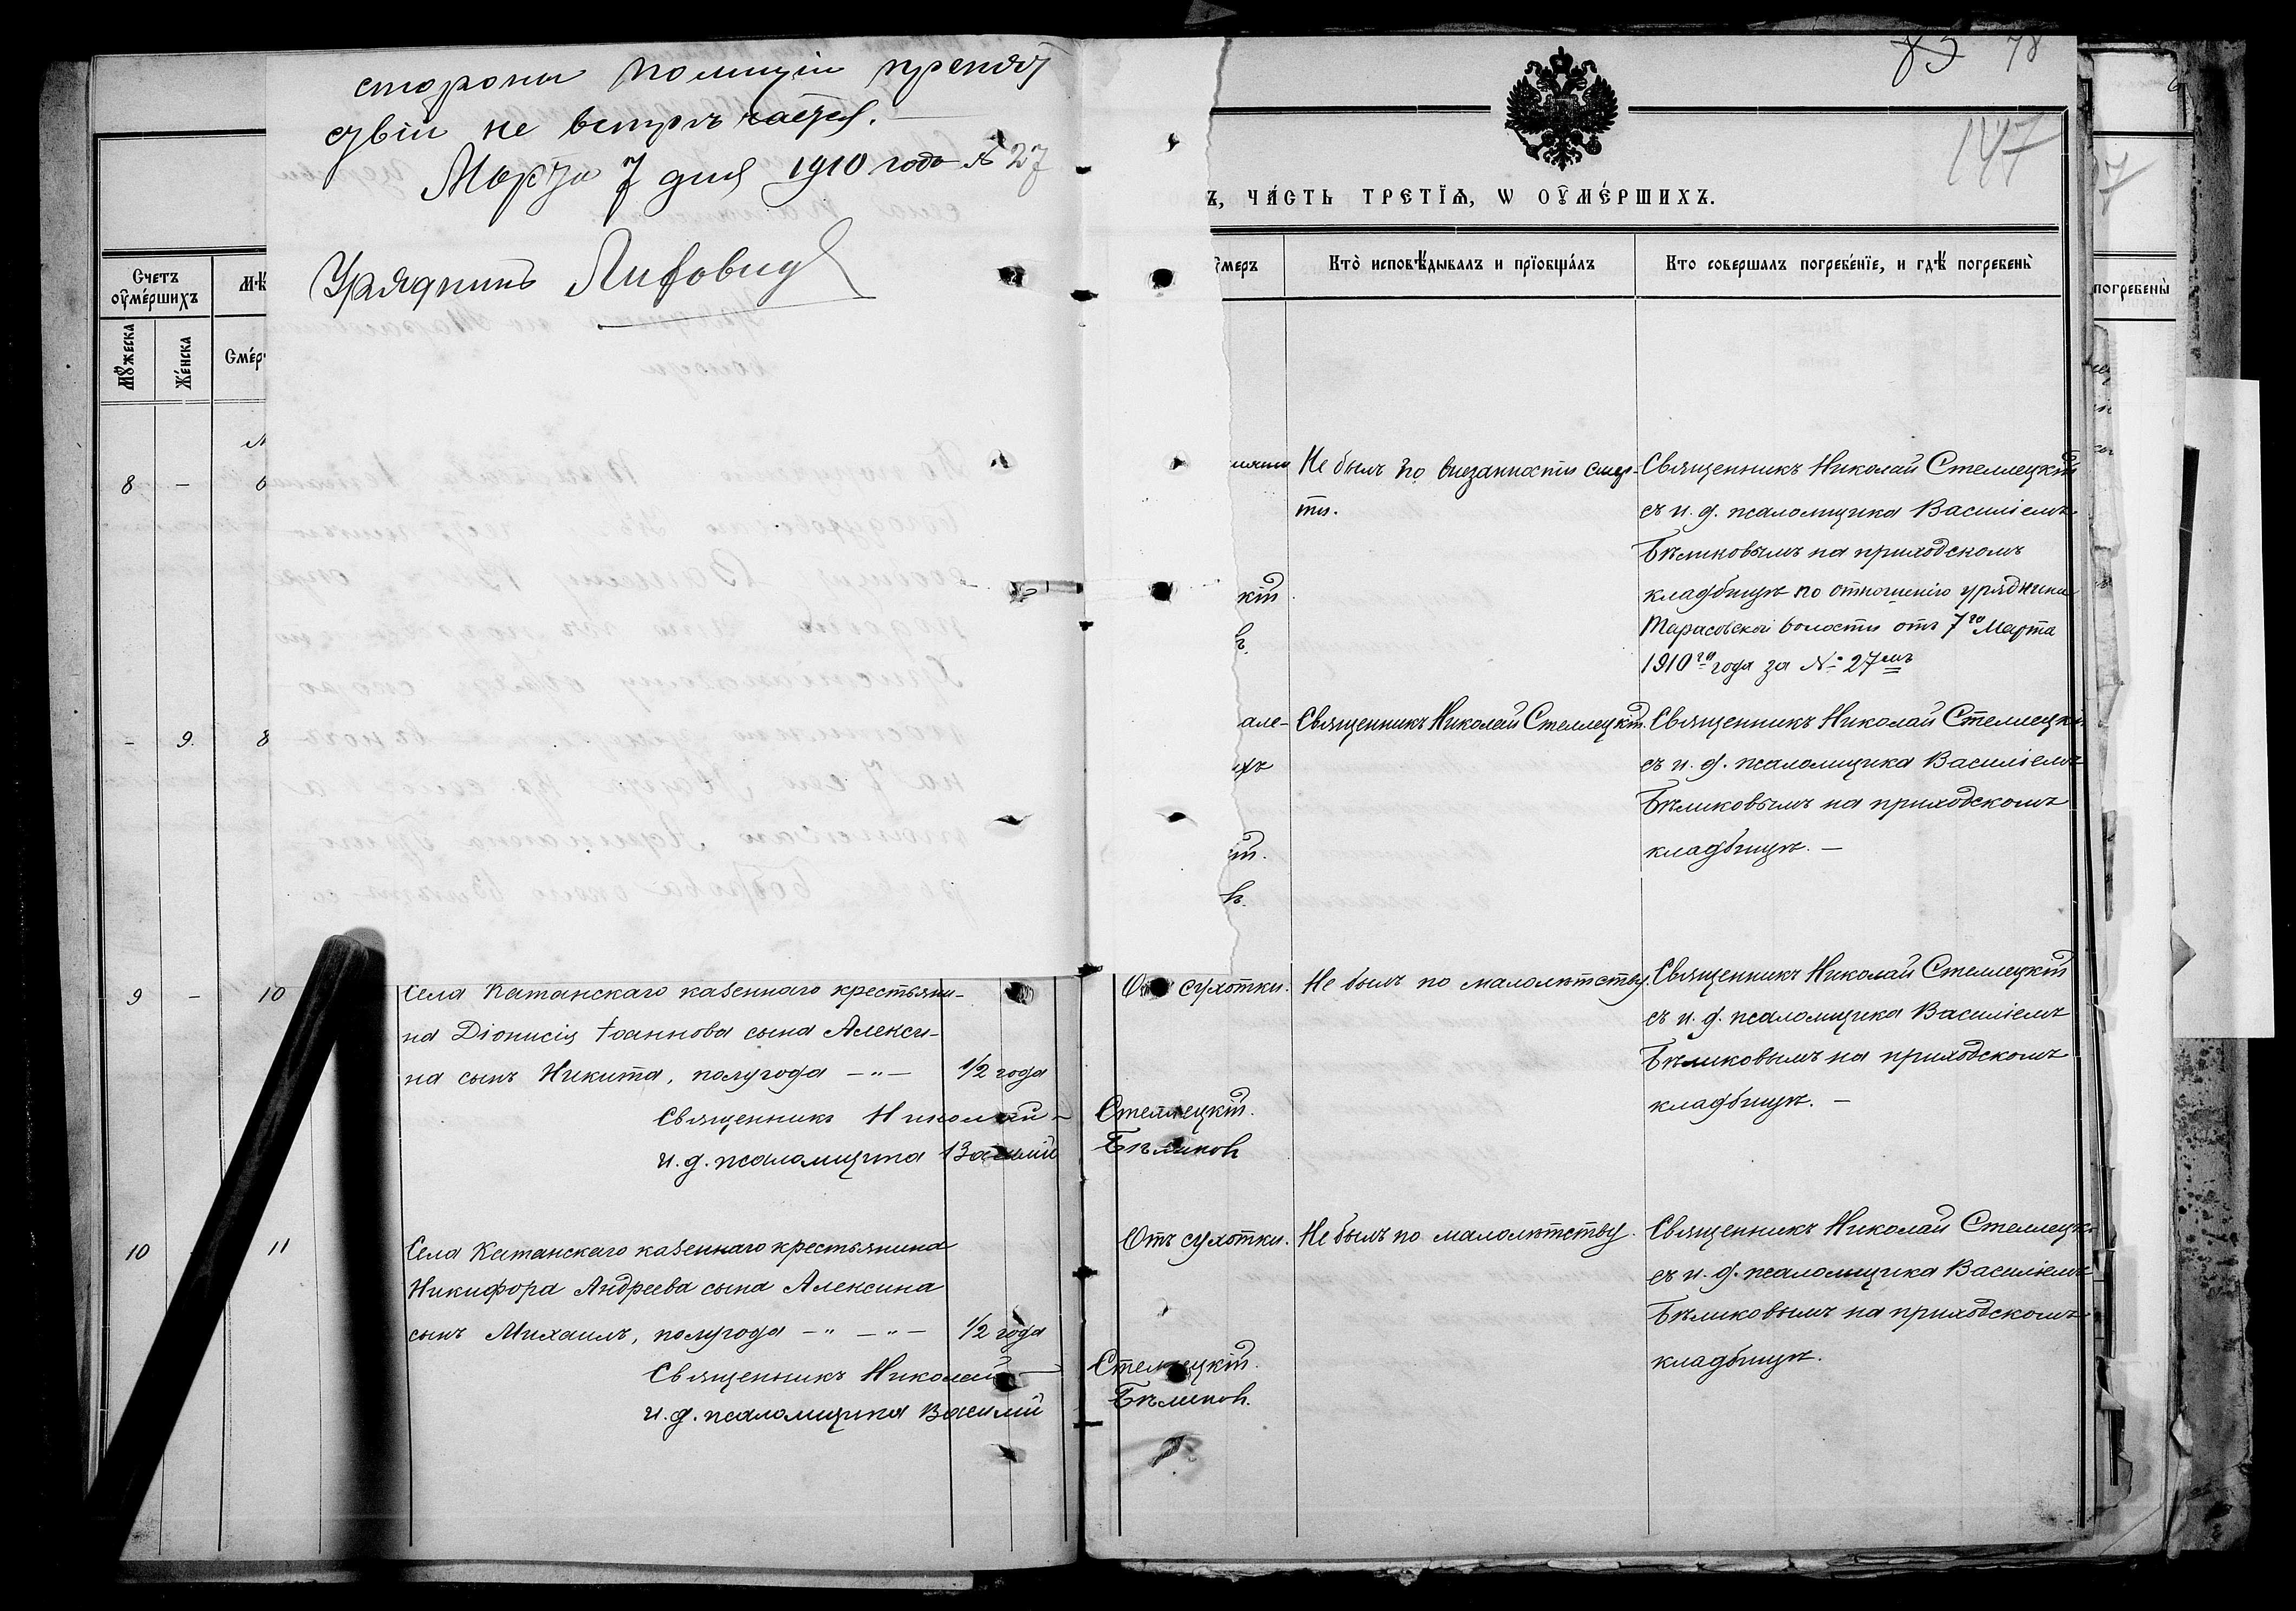 стороны полиціи препят
ствій не встрѣчается.
Марта 7 дня 1910 года № 27
Урядникъ
Счетъ
оумершихъ
Мужеска
Женска
Смер
8 — 
— 9. 8
9 — 10
Села Катанскаго казеннаго крестьяни-
на Діонисія Іоаннова сына Алекси-
на сынъ Никита, полугода — „ — 1/2 года
Священникъ Николай — Стеллецкій.
и. д. псаломщика Василій Бѣликовъ
10 11
Села Катанскаго казеннаго крестьянина
Никифора Андреева сына Алексина
сынъ Михаилъ, полугода — „ — „ — 1/2 года
Священникъ Николай — Стеллецкій.
и. д. псаломщика Василій Бѣликовъ.
83 78
147
Ъ, ЧАСТЬ ТРЕТІЯ, Ѡ ОУМЕРШИХЪ.
умеръ
Кто исповѣдывалъ и пріобщалъ
Кто совершалъ погребеніе, и гдѣ погребены
погребены
Не былъ по внезапности смер-
ти.
Священникъ Николай Стеллецкій
съ и. д. псаломщика Василіемъ
Бѣликовымъ на приходскомъ
кладбищѣ по отношенію урядника
Тарасовской волости отъ 7го Марта
1910го года за № 27мъ
кій
ъ.
але-
Священникъ Николай Стеллецкій.
Священникъ Николай Стеллецкій
съ и. д. псаломщика Василіемъ
Бѣликовымъ на приходскомъ
кладбищѣ. —
ій.
ъ.
Отъ сухотки.
Не былъ по малолѣтству.
Священникъ Николай Стеллецкій
съ и. д. псаломщика Василіемъ
Бѣликовымъ на приходскомъ
кладбищѣ. —
Отъ сухотки.
Не былъ по малолѣтству.
Священникъ Николай Стеллецкі
съ и. д. псаломщика Василіемъ
Бѣликовымъ на приходскомъ
кладбищѣ.